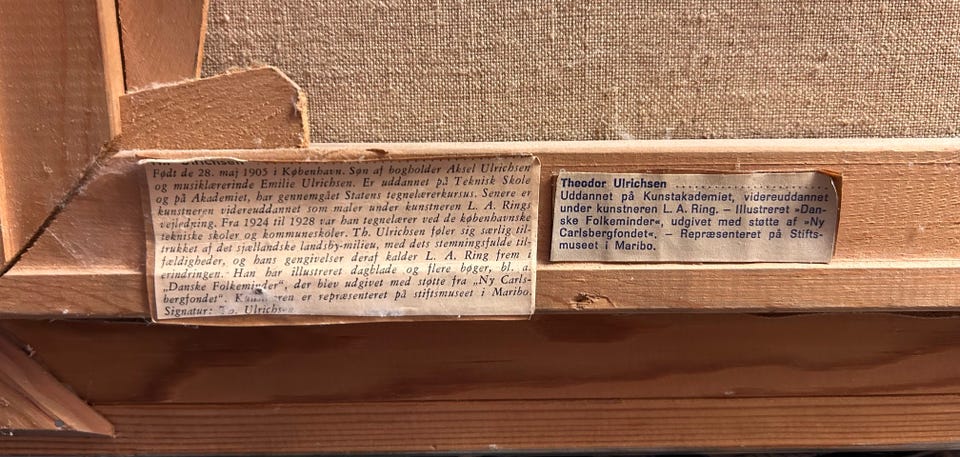 Ulrichsen
Født de 28. maj 1905 i København. Søn af bogholder Aksel Ulrichsen
og musiklærerinde Emilie Ulrichsen. Er uddannet på Teknisk Skole
og på Akademiet, har gennemgået Statens tegnelærerkursus. Senere er
kunstneren videreuddannet som maler under kunstneren L. A. Rings
vejledning. Fra 1924 til 1928 har han tegnelærer ved de københavnske
tekniske skoler og kommuneskoler. Th. Ulrichsen føler sig særlig til-
trukket af det sjællandske landsby-milieu, med dets stemningsfulde til-
fældigheder, og hans gengivelser deraf kalder L. A. Ring frem i
erindringen. Han har illustreret dagblade og flere bøger, bl. a.
„Danske Folkeminder“, der blev udgivet med støtte fra „Ny Carls-
bergfondet“. er repræsenteret på stiftsmuseet i Maribo.
Signatur: Ulrichsen
Theodor Ulrichsen
Uddannet på Kunstakademiet, videreuddannet
under kunstneren L. A. Ring. — Illustreret »Dan-
ske Folkeminder«, udgivet med støtte af »Ny
Carlsbergfondet«. — Repræsenteret på Stifts-
museet i Maribo.